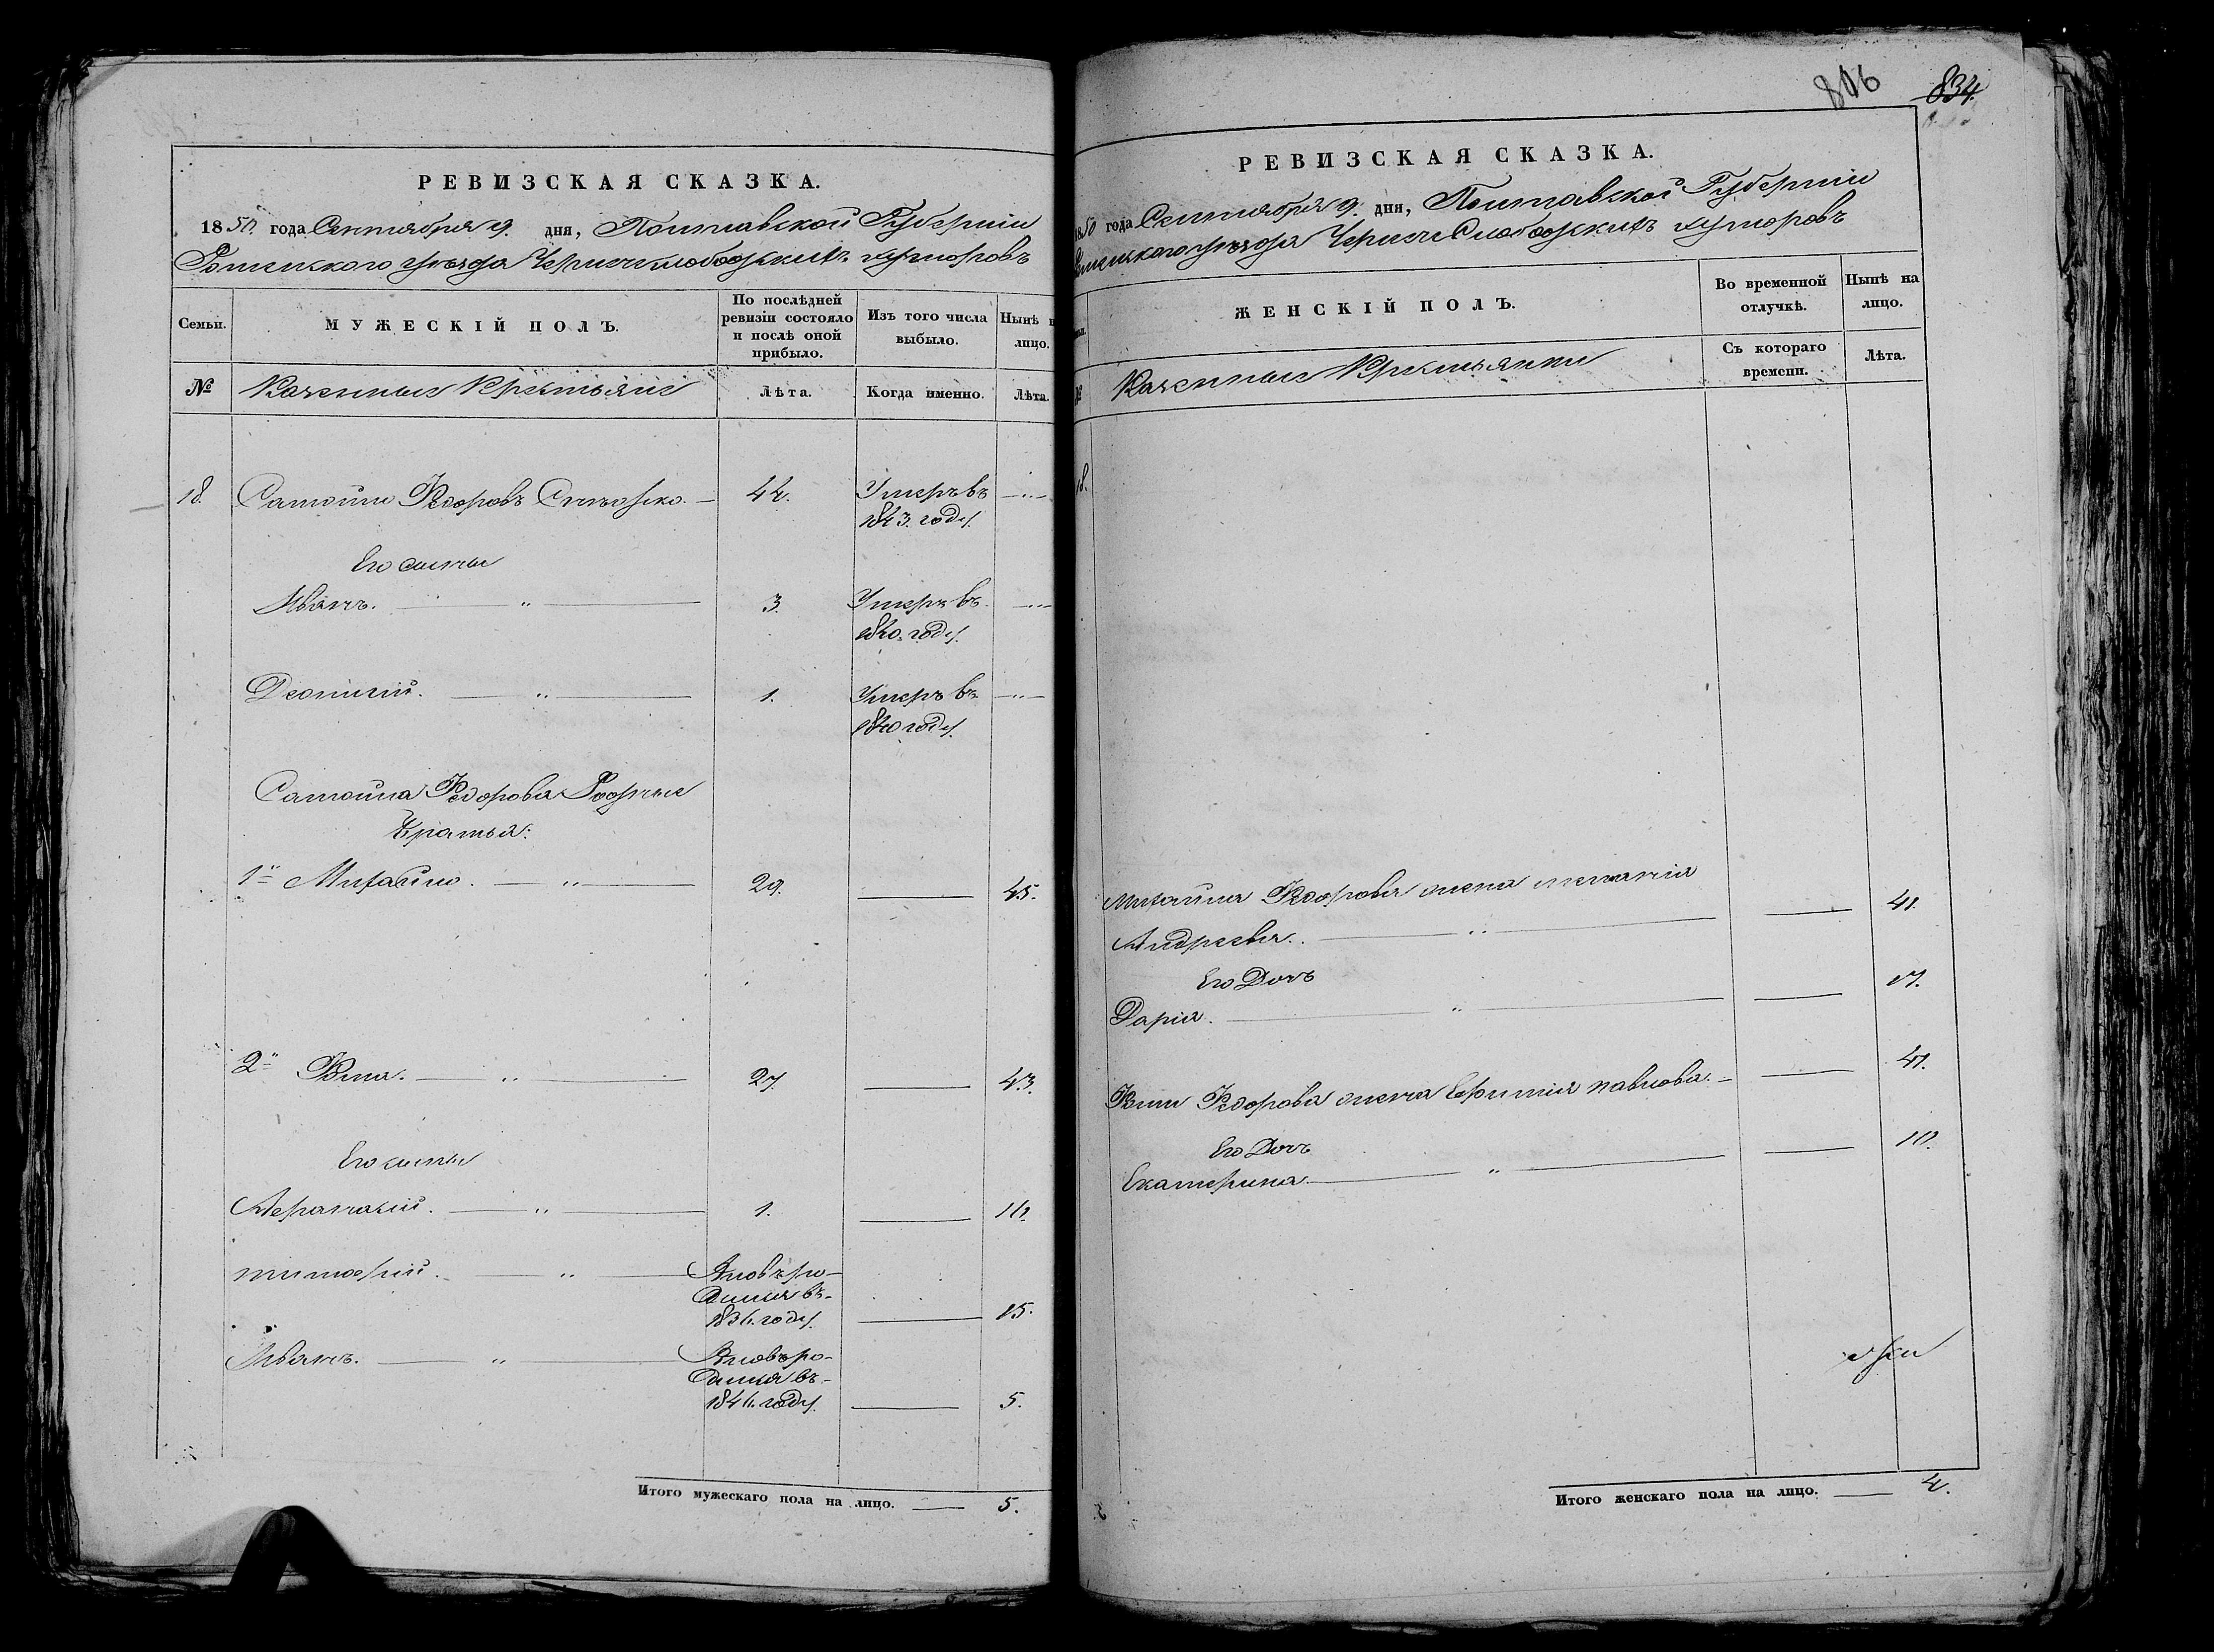 РЕВИЗСКАЯ СКАЗКА.
1850. года Сентября 9. дня, Полтавской Губернии
Роменского уезда хуторовъ
Семьи.
МУЖЕСКІЙ ПОЛЪ.
По послѣдней ревизіи состояло и послѣ оной прибыло.
Изъ того числа выбыло.
Нынѣ
лицо.
№
Казенные Крестьяне
Лѣта.
Когда именно.
Лѣта.
18. Самойло Федоровъ 44. Умеръ въ
1843. году.
Его сыны
Иванъ. 3. Умеръ въ
1840. году.
Деонисий. 1. Умеръ въ
1840 году.
Самойла Федорова Родные
братья:
1й Михайло. 29. 45.
2й Фома. 27. 43.
Его сыны
Афанасий. 1. 16.
Тимофий. Вновь ро-
дился въ
году. 15.
Иванъ. Вновь ро-
дился въ
году. 5.
Итого мужескаго пола на лицо. 5.
806 834.
РЕВИЗСКАЯ СКАЗКА.
1850 года Сентября 9. дня, Полтавской Губернии
Роменского уезда хуторовъ
ЖЕНСКІЙ ПОЛЪ.
Во временной отлучкѣ.
Нынѣ на лицо.
№
Казенные Крестьянки
Съ котораго времени.
Лѣта.
18.
Михайла Федорова жена
Андреева. 41.
Его Дочъ
Дария. 17.
Фомы Федорова жена Ефимия павлова. 41.
Его Дочъ
Екатерина. 10.
Итого женскаго пола на лицо. 4.